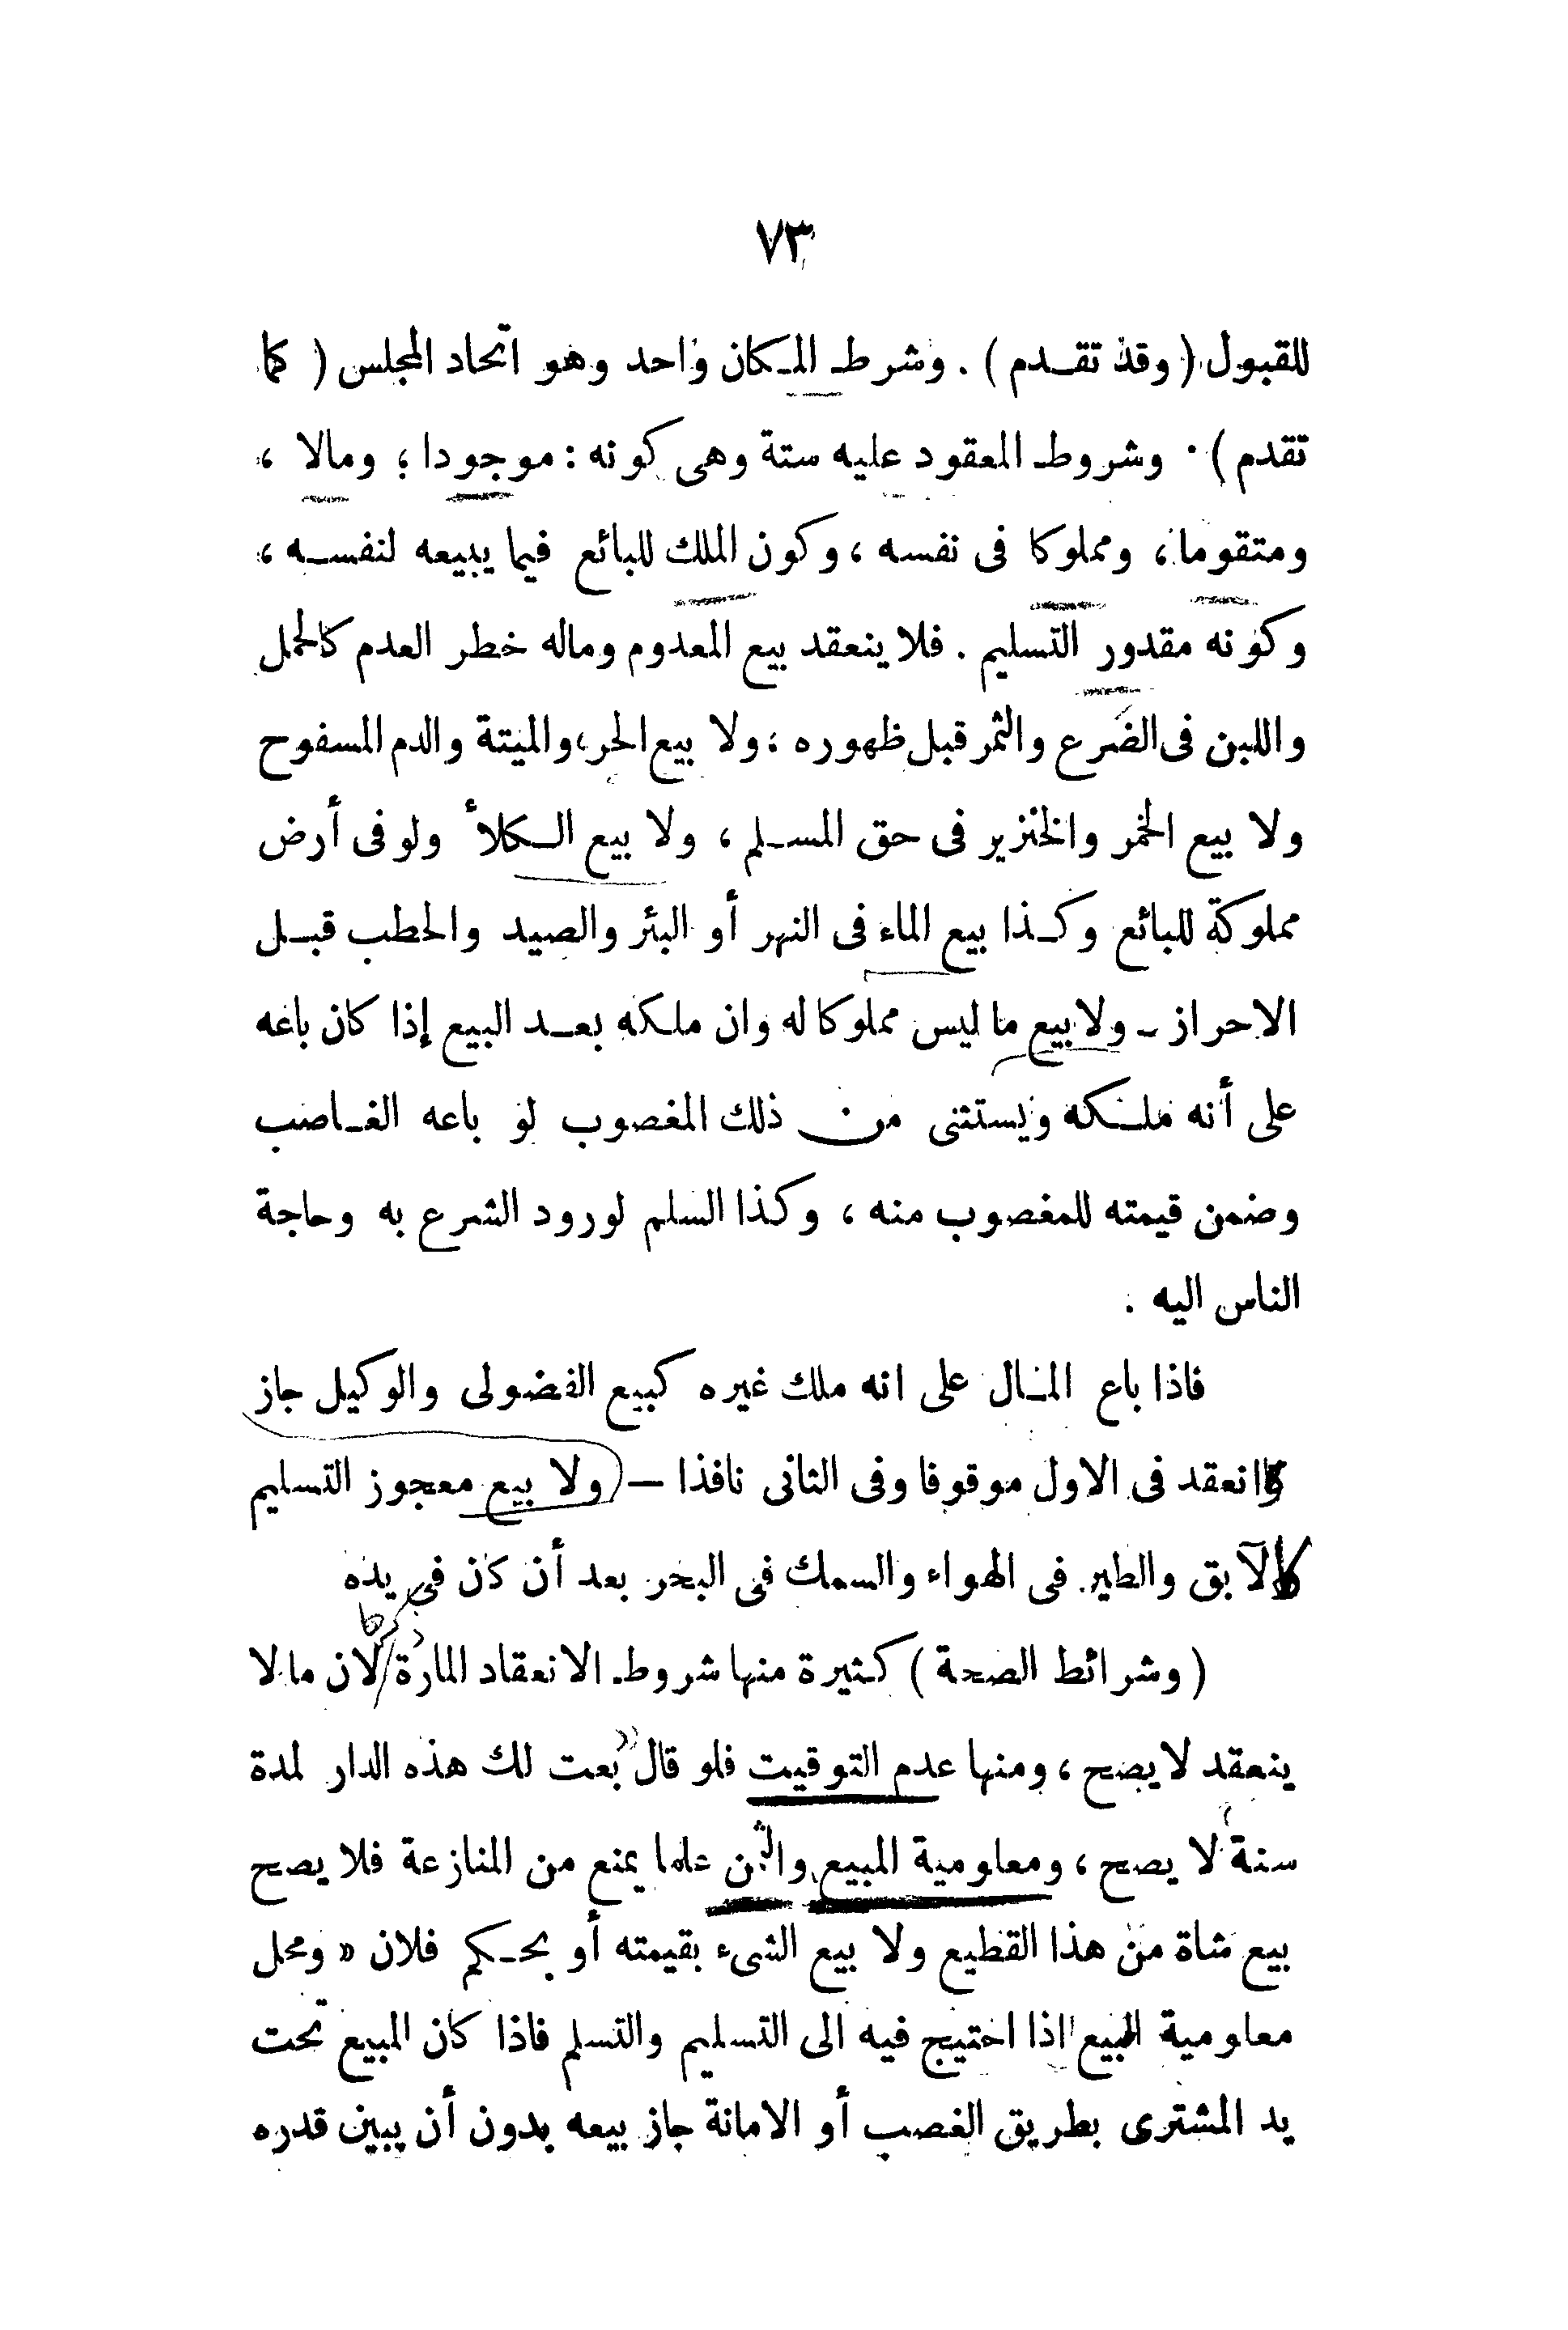 ٧٣
للقبول ( وقد تقدم ) . وشرط المكان واحد وهو اتحاد المجلس ( كما
تقدم ) . وشروط المعقود عليه ستة وهى كونه : موجودا ؛ ومالا ،
ومتقوما ، ومملوكا فى نفسه ، وكون الملك للبائع فيما يبيعه لنفسه ،
وكونه مقدور التسليم . فلا ينعقد بيع المعدوم وماله خطر العدم كالحمل
واللبن فى الضرع والثمر قبل ظهوره ؛ ولا بيع الحر ، والميتة والدم المسفوح
ولا بيع الخمر والخنزير فى حق المسلم ، ولا بيع الكلأ ولو فى أرض
مملوكة للبائع وكذا بيع الماء فى النهر أو البئر والصيد والحطب قبل
الاحراز ـ ولا بيع ما ليس مملوكا له وان ملكه بعد البيع إذا كان باعه
على أنه ملكه ويستثنى من ذلك المغصوب لو باعه الغاصب
وضمن قيمته للمغصوب منه ، وكذا السلم لورود الشرع به وحاجة
الناس اليه .
فاذا باع المال على انه ملك غيره كبيع الفضولى والوكيل جاز
وانعقد فى الاول موقوفا وفى الثانى نافذا — ( ولا بيع معجوز التسليم
كالآبق والطير فى الهواء والسمك فى البحر بعد أن كان فى يده
( وشرائط الصحة ) كثيرة منها شروط الانعقاد المارة لان ما لا
ينعقد لا يصح ، ومنها عدم التوقيت فلو قال بعت لك هذه الدار لمدة
سنة لا يصح ، ومعلومية المبيع والثمن علما يمنع من المنازعة فلا يصح
بيع شاة من هذا القطيع ولا بيع الشىء بقيمته أو بحكم فلان « ومحل
معلومية المبيع اذا احتيج فيه الى التسليم والتسلم فاذا كان المبيع تحت
يد المشترى بطريق الغصب أو الامانة جاز بيعه بدون أن يبين قدره